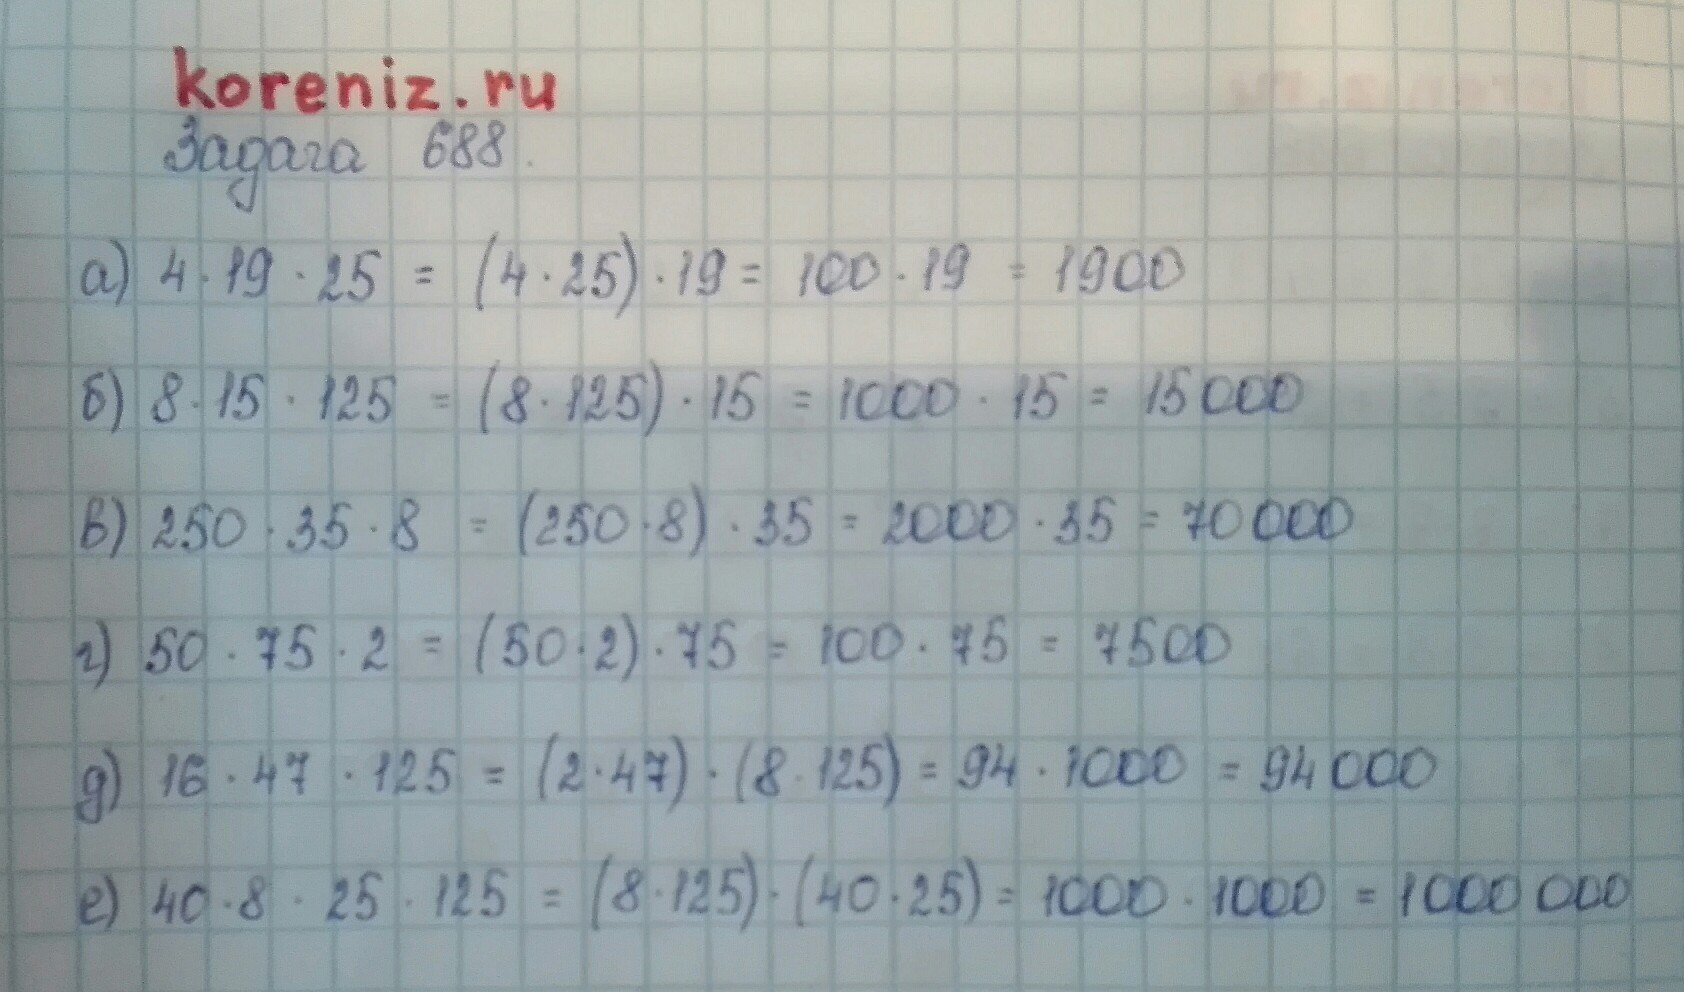 koreniz.ru
Задача 688.
а) 4 · 19 · 25 = (4 · 25) · 19 = 100 · 19 = 1900
б) 8 · 15 · 125 = (8 · 125) · 15 = 1000 · 15 = 15 000
в) 250 · 35 · 8 = (250 · 8) · 35 = 2000 · 35 = 70 000
г) 50 · 75 · 2 = (50 · 2) · 75 = 100 · 75 = 7500
д) 16 · 47 · 125 = (2 · 47) · (8 · 125) = 94 · 1000 = 94 000
е) 40 · 8 · 25 · 125 = (8 · 125) · (40 · 25) = 1000 · 1000 = 1000 000